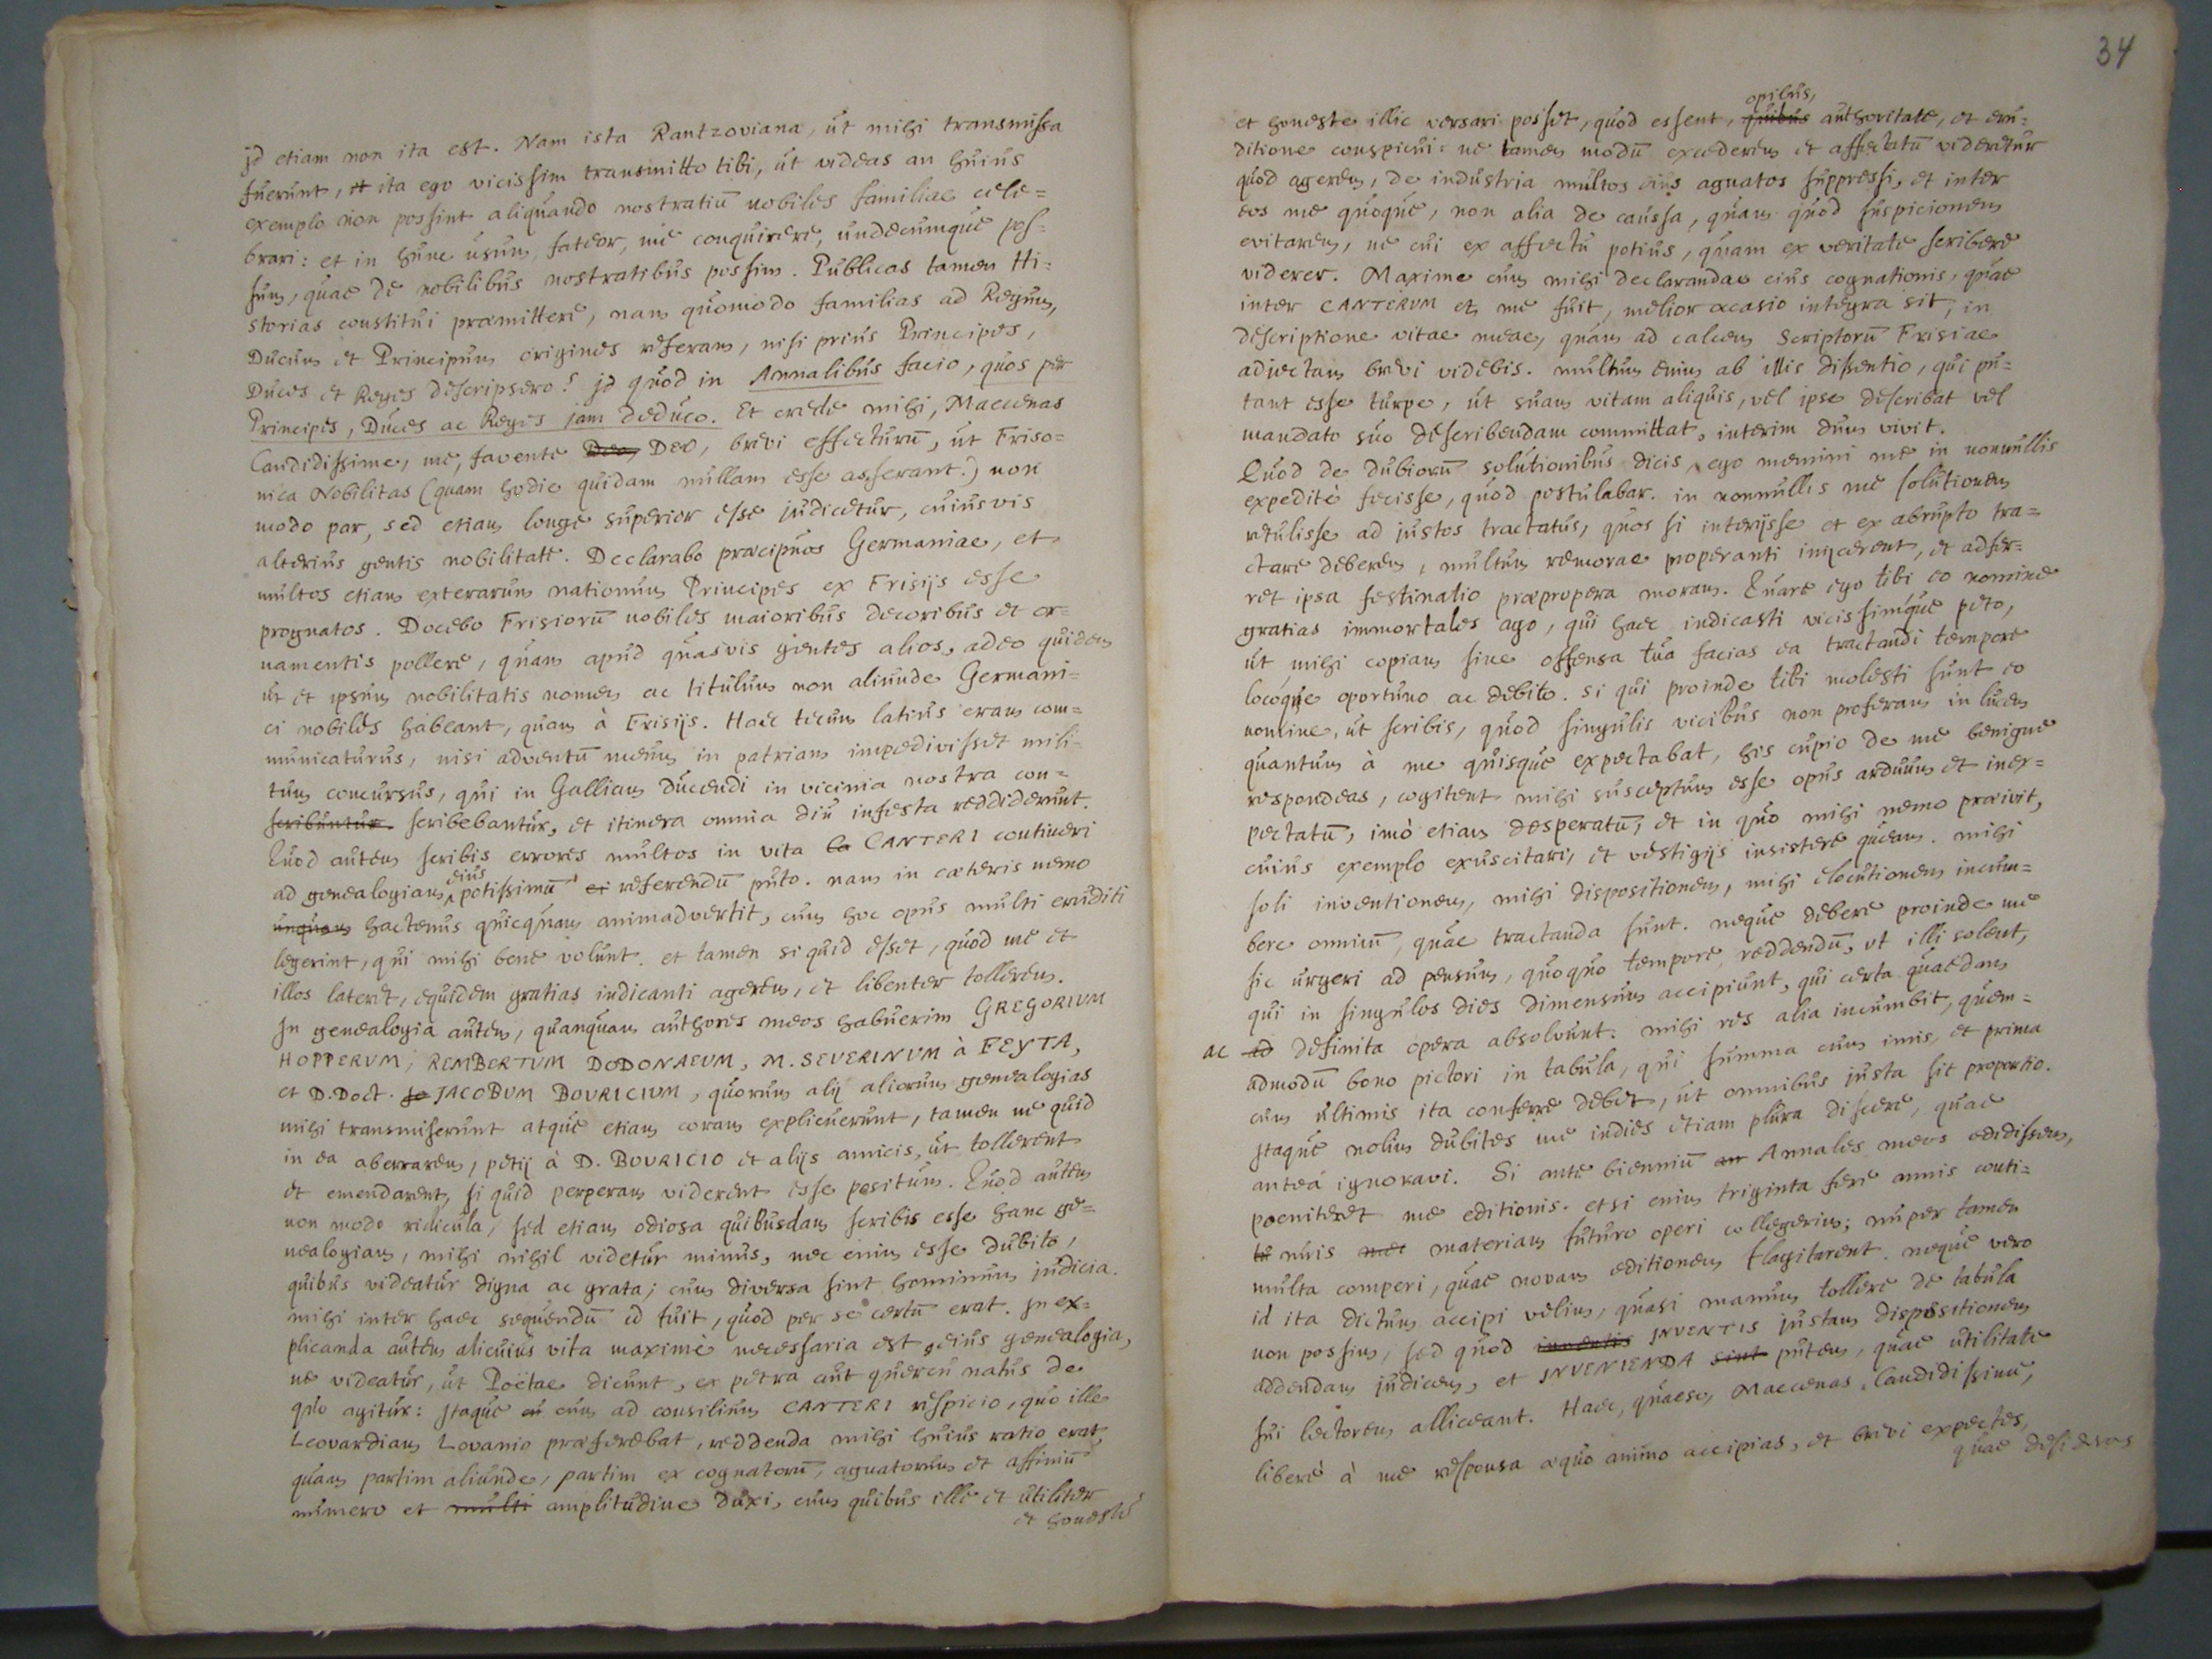 jd etiam non ita est. Nam ista Rantzoviana, ut mihi transmissa
fuerunt, et ita ego vicissim transmitto tibi, ut videas an huius
exemplo non possint aliquando nostratiũ nobiles familiae cele=
brari: et in hunc usum, fateor, me conquirere, undecumque pos=
sum, quae de nobilibus nostratibus possim. Publicas tamen Hi=
storias constitui praemittere, nam quomodo familias ad Regum,
Ducum et Principum origines referam, nisi prius Principes,
Duces et Reges descripsero? jd quod in Annalibus facio, quos per
Principes, Duces ac Reges jam deduco. Et crede mihi, Maecenas
Candidissime, me, favente Deo, Deo, brevi effecturũ, ut Friso=
nica Nobilitas (quam hodie quidam nullam esse asserant.) non
modo par, sed etiam longe superior esse judicetur, cuiusvis
alterius gentis nobilitate. Declarabo praecipuos Germaniae, et
multos etiam exterarum nationum Principes ex Frisijs esse
prognatos. Docebo Frisiorũ nobiles maioribus decoribus et or=
namentis pollere, quam apud quasvis gentes alios, adeo quidem
ut et ipsum nobilitatis nomen ac titulum non aliunde Germani=
ci nobiles habeant, quam à Frisijs. Haec tecum latius eram com=
municaturus, nisi adventũ meum in patriam impedivisset mili=
tum concursus, qui in Galliam ducendi in vicinia nostra con=
scribuntur. scribebantur, et itinera omnia diu infesta reddiderunt.
Quod autem scribis errores multos in vita CANTERI contineri
ad genealogiam eius potissimũ ei referendũ puto. nam in caeteris nemo
unquam hactenus quicquam animadvertit, cum hoc opus multi eruditi
legerint, qui mihi bene volunt. et tamen si quid esset, quod me et
illos lateret, equidem gratias indicanti agerem, et libenter tollerem.
Jn genealogia autem, quanquam authores meos habuerim GREGORIUM
HOPPERUM, REMBERTUM DODONAEUM, M. SEVERINUM à FEYTA,
et D. Doct. Ja JACOBUM BOURICIUM, quorum alij aliorum genealogias
mihi transmiserunt atque etiam coram explicuerunt, tamen ne quid
in ea aberrarem, petij à D. BOURICIO et alijs amicis, ut tollerent
et emendarent, si quid perperam viderent esse positum. Quod autem
non modo ridicula, sed etiam odiosa quibusdam scribis esse hanc ge=
nealogiam, mihi nihil videtur minus, nec enim esse dubito,
quibus videatur digna ac grata; cum diversa sint hominum judicia.
mihi inter haec sequendũ id fuit, quod per se certũ erat. Jn ex=
plicanda autem alicuius vita maximè necessaria est, eius genealogia,
ne videatur, ut Poëtae dicunt, ex petra aut quercu natus de
quo agitur: Jtaque cũ cum ad consilium CANTERI respicio, quo ille
Leovardiam Lovanio praeferebat, reddenda mihi huius ratio erat,
quam partim aliunde, partim ex cognatorũ, agnatorum et affiniũ
numero et multi amplitudine duxi, cum quibus ille et utiliter
et honeste
34
et honeste illic versari posset, quod essent, quibus opibus, authoritate, et eru=
ditione conspicui: ne tamen modũ excederem et affectatũ videretur
quod agerem, de industria multos eius agnatos suppressi, et inter
eos me quoque, non alia de caussa, quam quod suspicionem
evitarem, ne cui ex affectu potius, quam ex veritate scribere
viderer. Maxime cum mihi declarandae eius cognationis, quae
inter CANTERUM et me fuit, melior occasio integra sit, in
descriptione vitae meae, quam ad calcem Scriptorũ Frisiae
adjectam brevi videbis. multum enim ab illis dissentio, qui pu=
tant esse turpe, ut suam vitam aliquis, vel ipse describat vel
mandato suo describendam committat, interim dum vivit.
Quod de dubiorũ solutionibus dicis, ego memini me in nonnullis
expeditè fecisse, quod postulabar. in nonnullis me solutionem
retulisse ad justos tractatus, quos si interijsse et ex abrupto tra=
ctare deberem, multum remorae properanti injicerent, et adfer=
ret ipsa festinatio praepropera moram. Quare ego tibi eo nomine
gratias immortales ago, qui haec indicasti vicissimque peto,
ut mihi copiam sine offensa tua facias ea tractandi tempore
locoque oportuno ac debito. si qui proinde tibi molesti sunt eo
nomine, ut scribis, quod singulis vicibus non proferam in lucem
quantum à me quisque expectabat, his cupio de me benigne
respondeas, cogitent mihi susceptum esse opus arduum et inex=
pectatũ, imò etiam desperatũ, et in quo mihi nemo praeivit,
cuius exemplo exuscitari, et vestigijs insistere queam. mihi
soli inventionem, mihi dispositionem, mihi elocutionem incum=
bere omniũ, quae tractanda sunt. neque debere proinde me
sic urgeri ad pensum, quoquo tempore reddendũ, ut illi solent,
qui in singulos dies dimensum accipiunt, qui certa quaedam
ac ad definita opera absolvunt. mihi res alia incumbit, quem=
admodũ bono pictori in tabula, qui summa cum imis, et prima
cum ultimis ita conferre debet, ut omnibus justa sit proportio.
Jtaque nolim dubites me indies etiam plura discere, quae
anteá ignoravi. Si ante bienniũ an Annales meos edidissem,
poeniteret me editionis. etsi enim triginta fere annis conti=
nuis materiam futuro operi collegerim; nuper tamen
multa comperi, quae novam editionem flagitarent. neque vero
id ita dictum accipi velim, quasi manum tollere de tabula
non possim, sed quod inventis JNVENTIS justam dispositionem
addendam judicem, et JNVENIENDA sint putem, quae utilitate
sui lectorem alliceant. Haec, quaeso, Maecenas Candidissime,
liberè à me responsa aequo animo accipias, et brevi expectes,
quae desideras